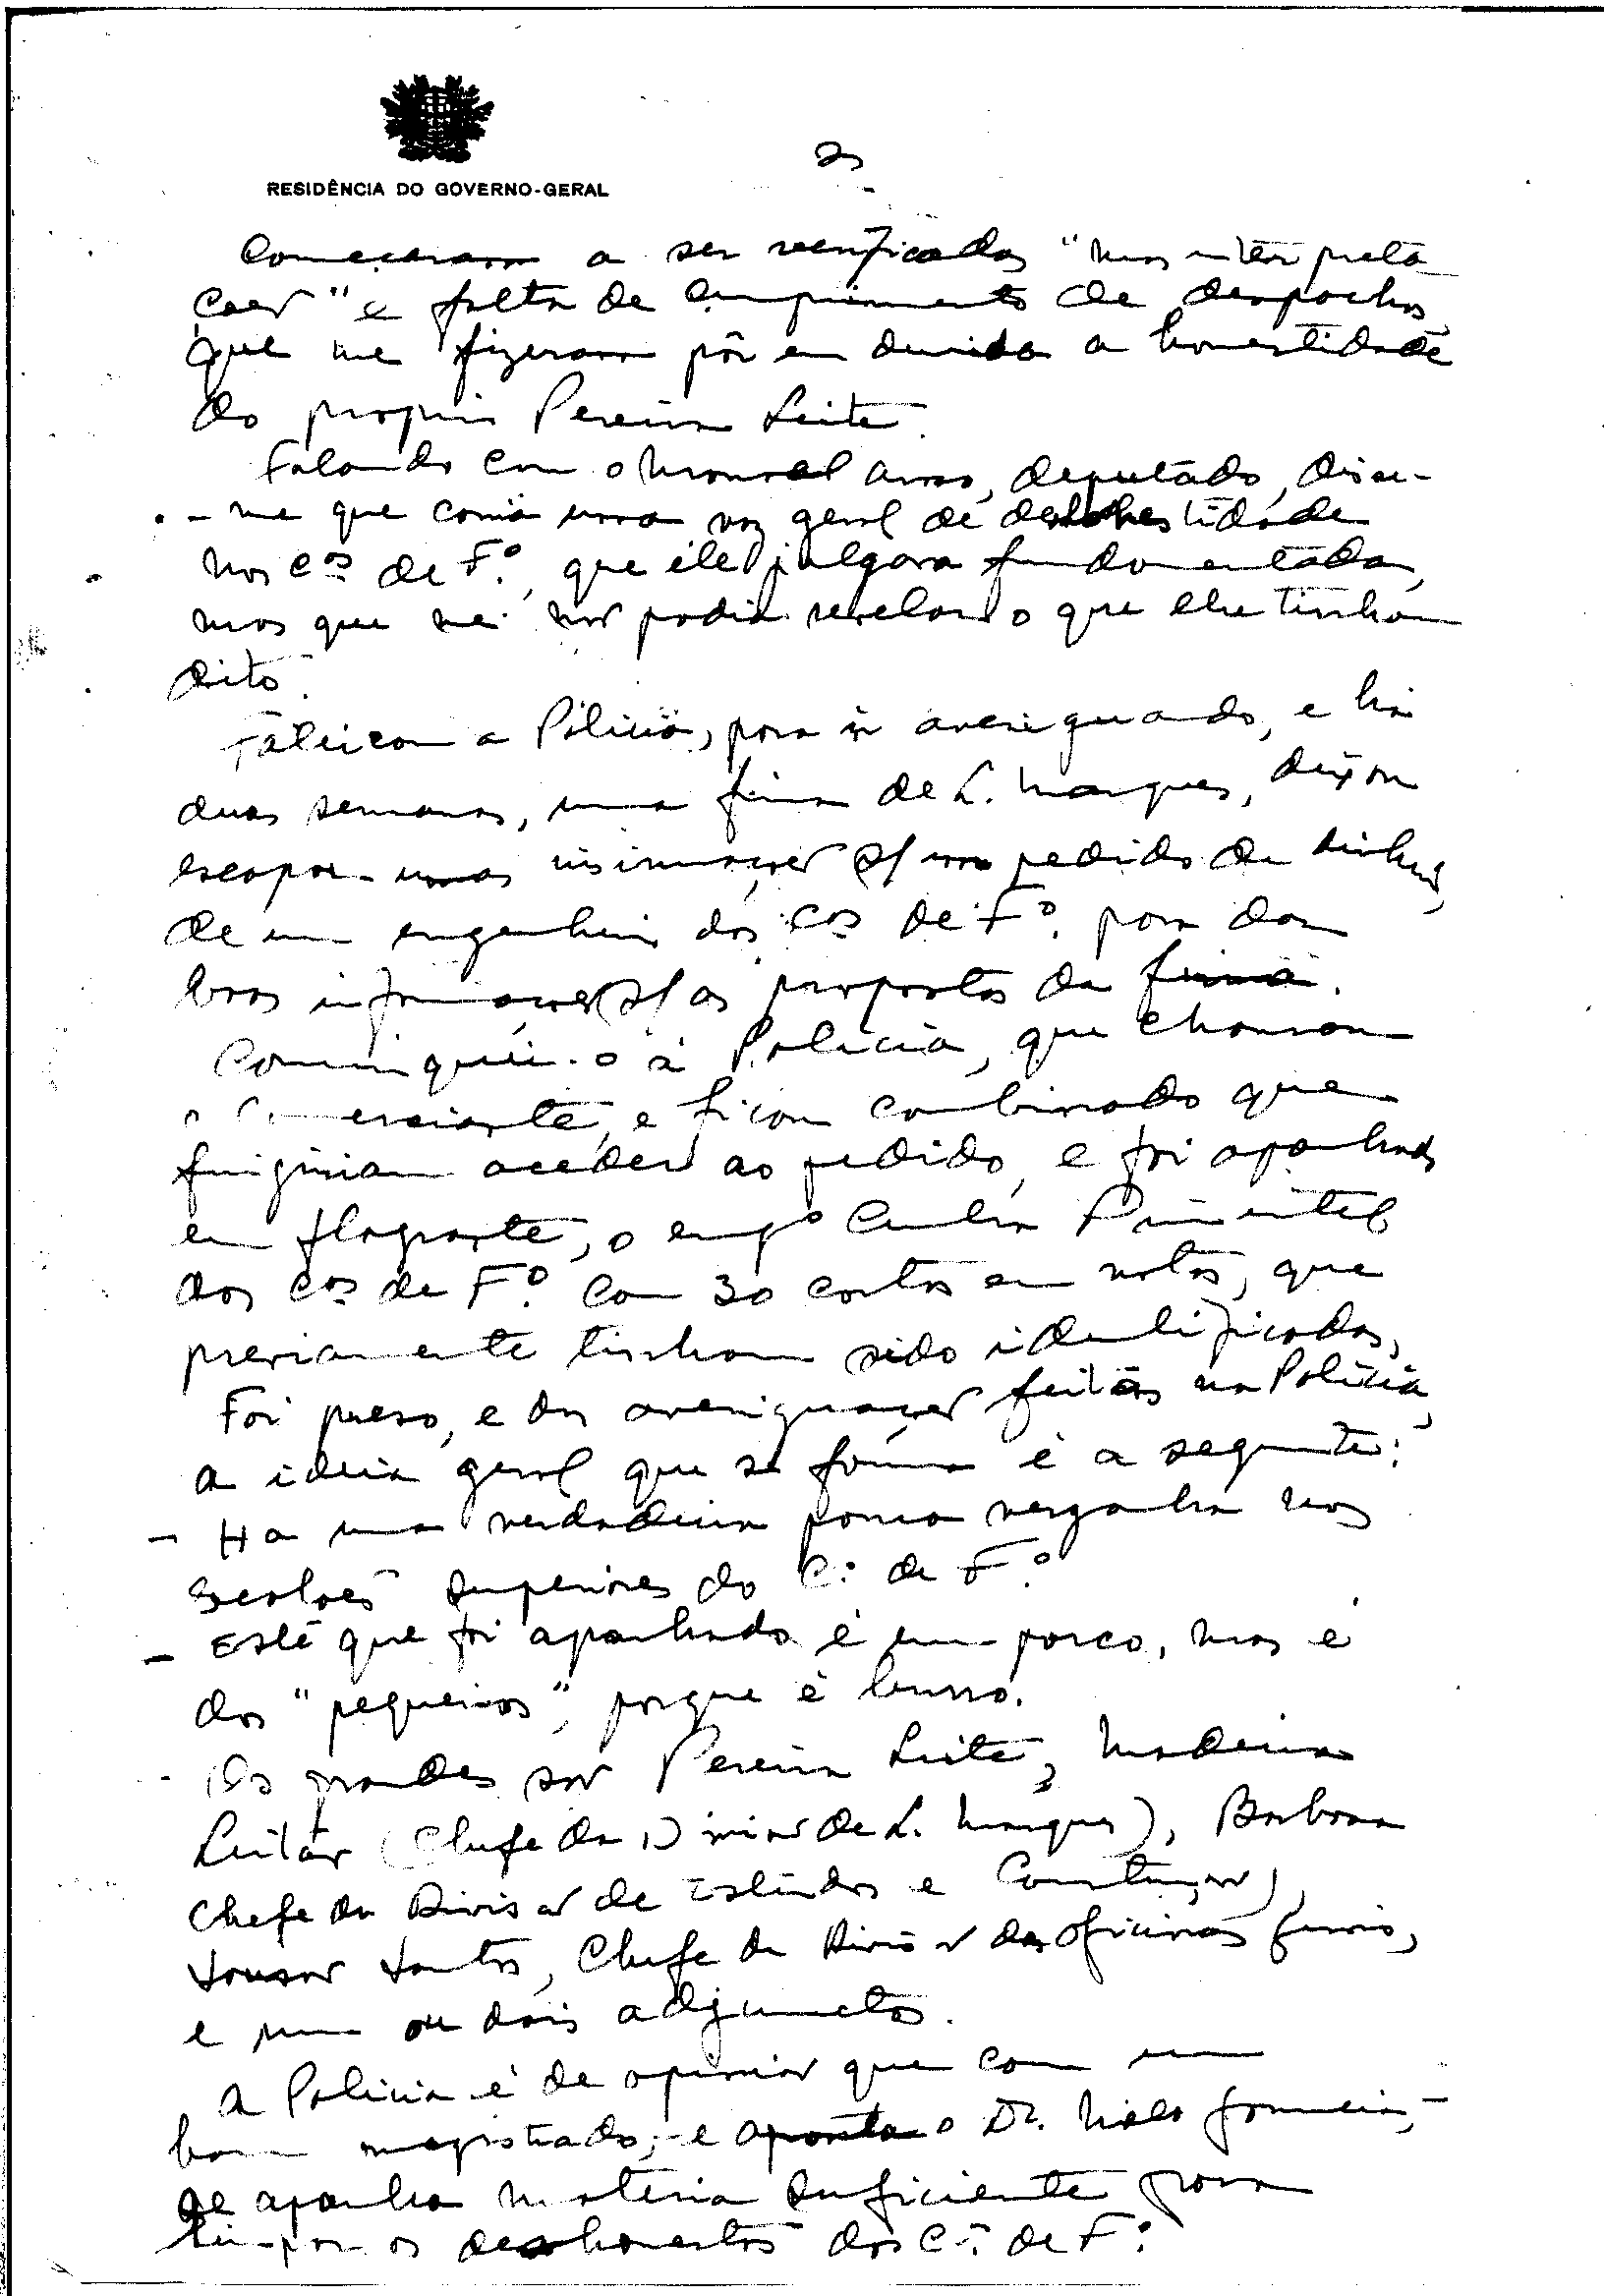 RESIDÊNCIA DO GOVERNO-GERAL
2
Começaram a ser verificadas "mas interpreta
ções" e falta de cumprimento de despachos
que me fizeram pôr em duvida a honestidade
do proprio Pereira Leite.
Falando com o Manuel, deputado, disse-
-me que corria uma voz geral de deshonestidade
nos cos de Fº, que ele julgava fundamentada,
mas que me não podia revelar o que lhe tinham
dito.
a Policia, para ir averiguando, e há
duas semanas, uma firma de L. Marques, deixou
escapar umas insinuações s/ um pedido de dinheiro,
de um engenheiro dos cos de Fº. para dar
boas informações s/ as propostas da firma.
Comuniquei-o à Policia, que chamou
o Comerciante, e ficou combinado que
fingiriam aceder ao pedido, e foi apanhado
em flagrante, o engº Cunha Pimentel
dos cos de Fº. com 30 contos em notas, que
previamente tinham sido identificadas,
Foi preso, e das averiguações feitas na Policia,
a ideia geral que se forma é a seguinte:
- Ha uma verdadeira pouca vergonha nos
superiores do C. de Fº
- Este que foi apanhado é um porco, mas é
dos "pequenos", porque é burro.
- Os grandes são Pereira Leite, Madeira
Leitão (Chefe da Divisão de L. Marques), Barbosa
Chefe da Divisão de Estudos e Construção),
Santos, Chefe da Divisão das oficinas gerais,
e um ou dois adjuntos.
A Policia é de opinião que com um
bom magistrado, - e aponta o Dr. -
se apanha materia suficiente para
limpar os deshonestos dos C. de Fº.